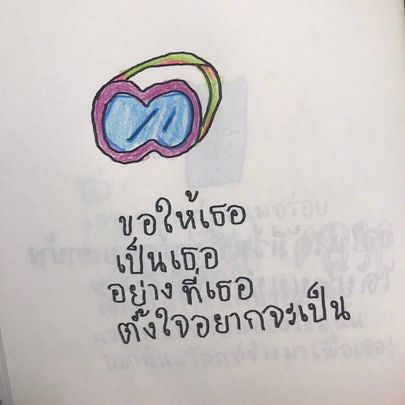 ขอให้เธอ
เป็นเธอ
อย่างที่เธอ
ตั้งใจอยากจะเป็น